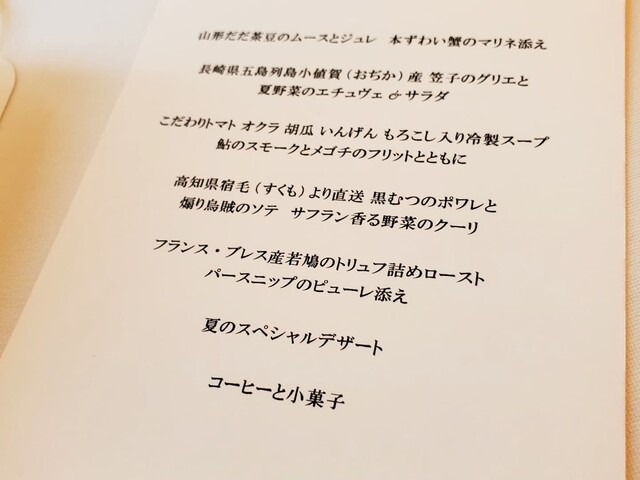 山形だだ茶豆のムースとジュレ 本ずわい蟹のマリネ添え
長崎県五島列島小値賀（おぢか）産 笠子のグリエと
夏野菜のエチュヴェ & サラダ
こだわりトマト オクラ 胡瓜 いんげん もろこし入り冷製スープ
鮎のスモークとメゴチのフリットとともに
高知県宿毛（すくも）より直送 黒むつのポワレと
煽り烏賊のソテ サフラン香る野菜のクーリ
フランス・ブレス産若鳩のトリュフ詰めロースト
パースニップのピューレ添え
夏のスペシャルデザート
コーヒーと小菓子